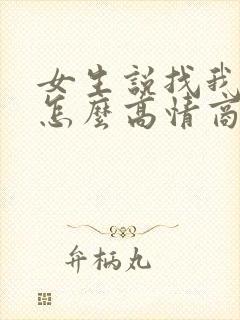 女生説找我
怎麼高情商
弁柄丸